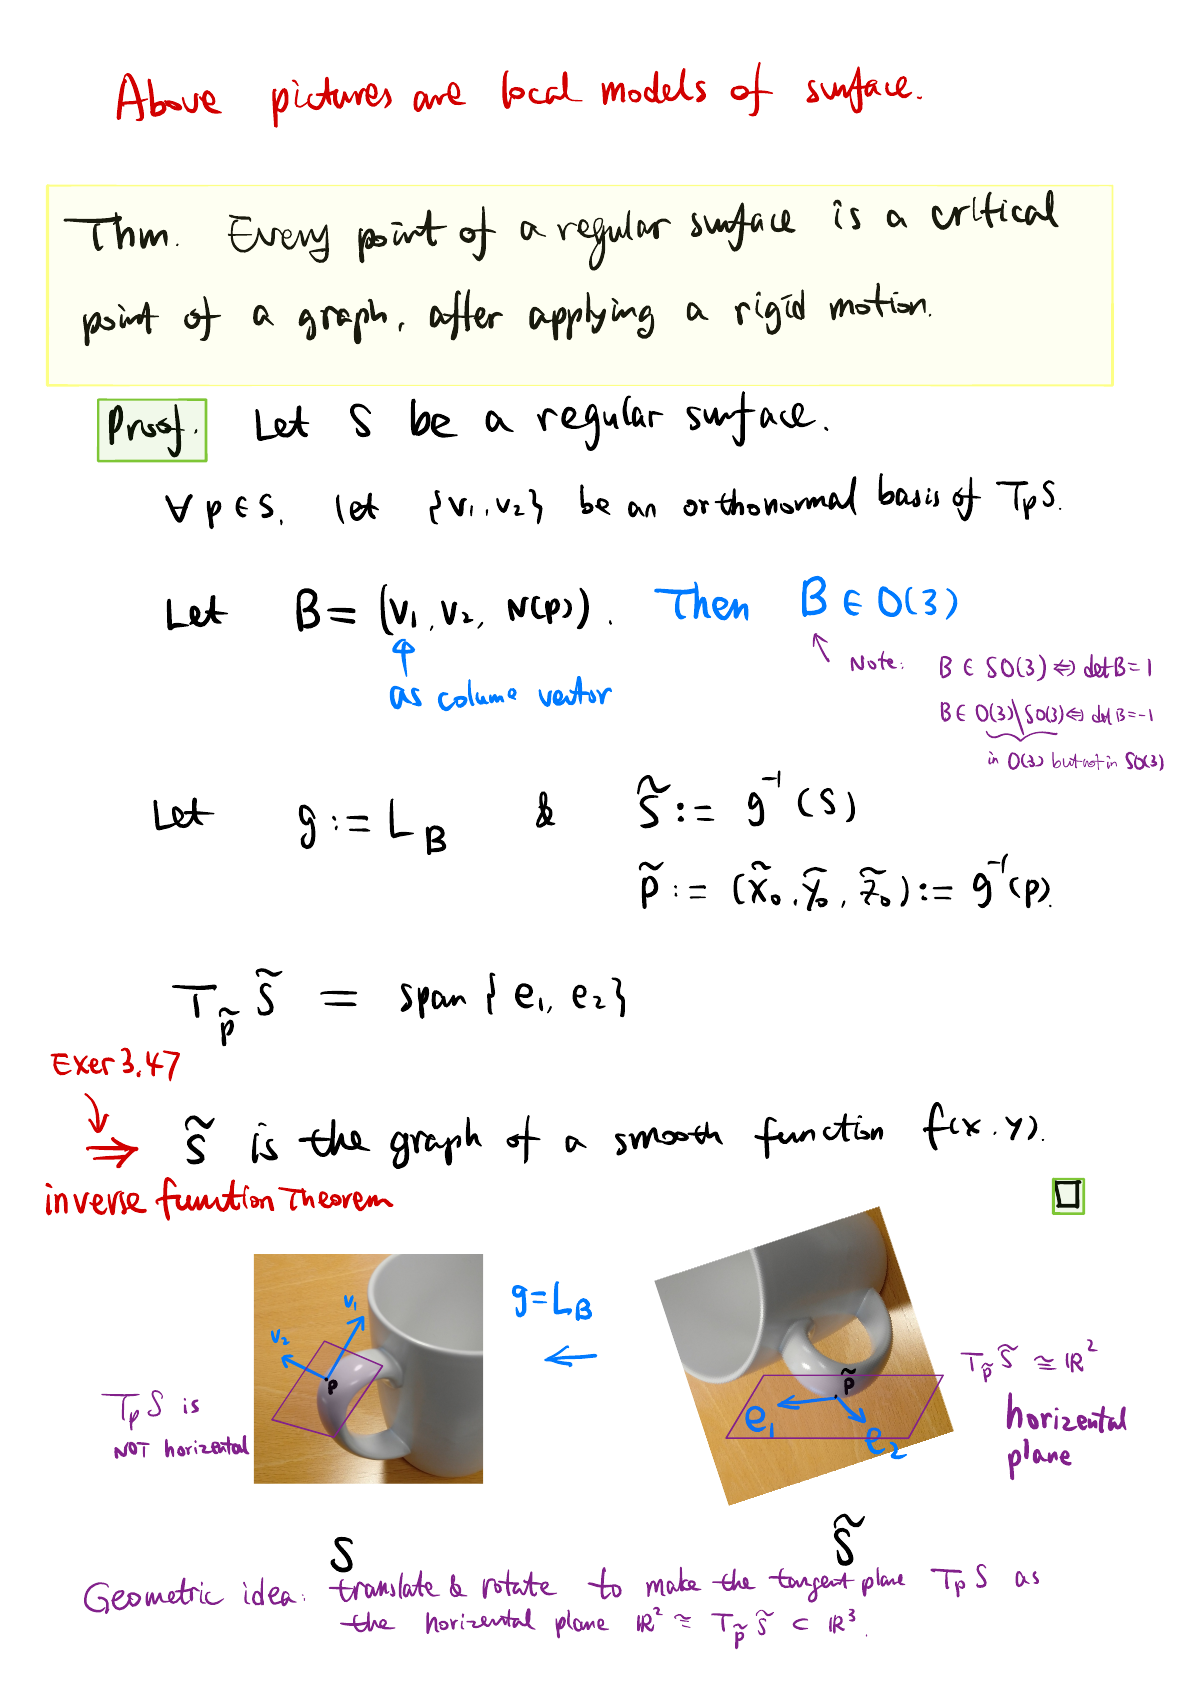 Above pictures are local models of surface.
Thm. Every point of a regular surface is a critical
point of a graph, after applying a rigid motion.
Proof. Let S be a regular surface.
∀ p ∈ S, let {v₁, v₂} be an orthonormal basis of TₚS.
Let B = (v₁, v₂, N(p)). Then B ∈ O(3)
as colume vector
Note: B ∈ SO(3) ⇔ det B = 1
B ∈ O(3)\SO(3) ⇔ det B = -1
in O(3) but not in SO(3)
Let g := L_B & S̃ := g⁻¹(S)
p̃ := (x̃₀, ỹ₀, z̃₀) := g⁻¹(p).
T_p̃ S̃ = span {e₁, e₂}
Exer 3.47
⇒ S̃ is the graph of a smooth function f(x, y).
inverse function Theorem
□
v₁
v₂
p
TₚS is
NOT horizental
g = L_B
←
p̃
e₁
e₂
T_p̃ S̃ ≅ ℝ²
horizental
plane
S
S̃
Geometric idea: translate & rotate to make the tangent plane TₚS as
the horizental plane ℝ² ≅ T_p̃ S̃ ⊂ ℝ³.